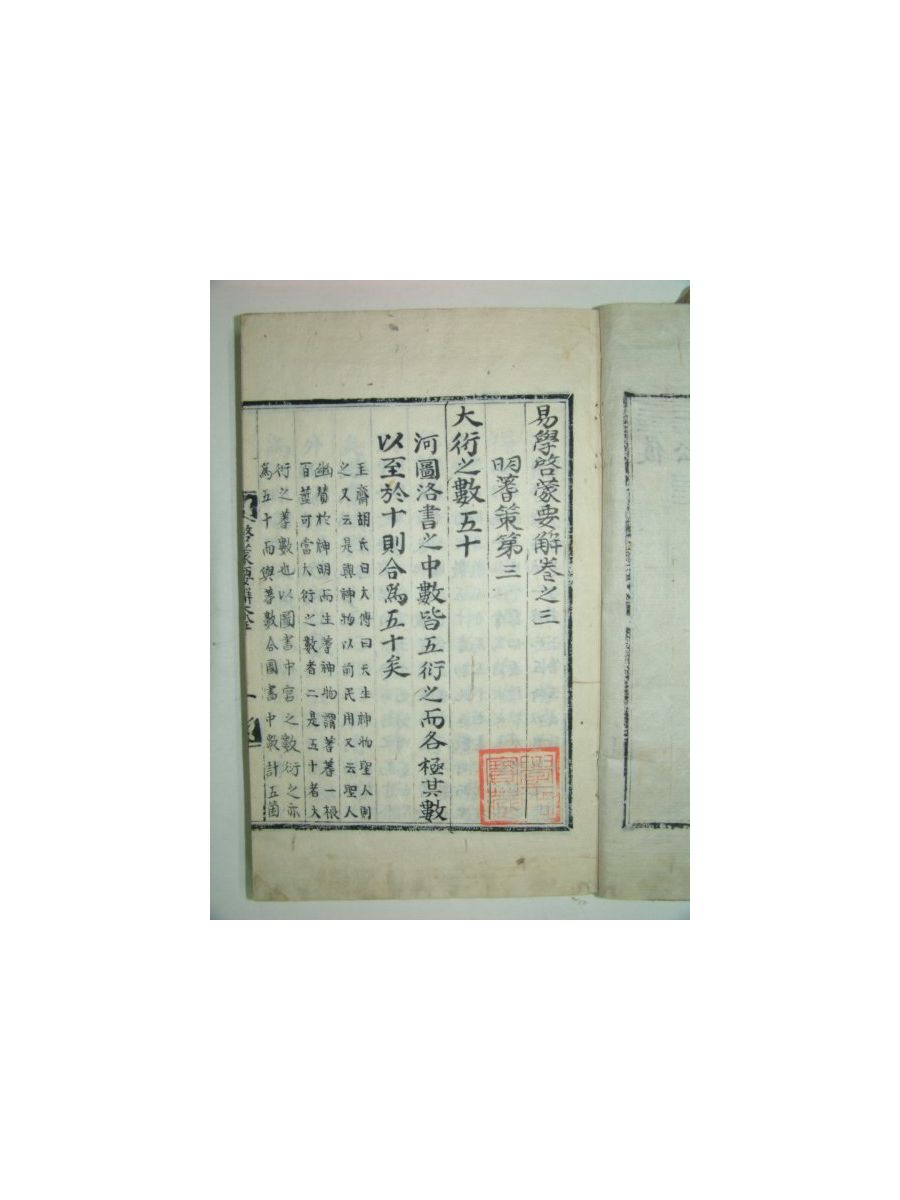 易學啓蒙要解卷之三
明蓍策第三
大衍之數五十
河圖洛書之中數皆五衍之而各極其數
以至於十則合爲五十矣
玉齋胡氏曰大傳曰天生神物聖人則
之又云是興神物以前民用又云聖人
幽贊於神明而生蓍神物謂蓍蓍一根
百莖可當大衍之數者二是五十者大
衍之蓍數也以圖書中宮之數衍之亦
爲五十而與蓍數合圖書中數計五箇